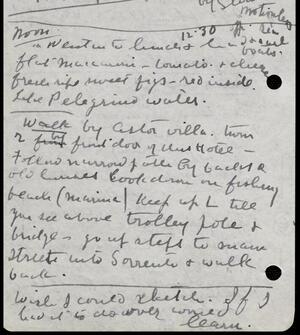 by
motionless
sea
Noon.
12-30
Went in to lunch & had
and
boats.
flat macaroni - tomato & cheese
fresh ripe sweet figs - red inside.
Pelegrino water.
Walk by Astor villa. turn
by front door of this Hotel -
Follow narrow path by backs of
old houses look down on fishing
beach (marina) Keep up L till
you see above trolley pole &
bridge - go up steps to main
street into Sorrento & walk
back.
Wish I could sketch. If I
had it to do over
learn.